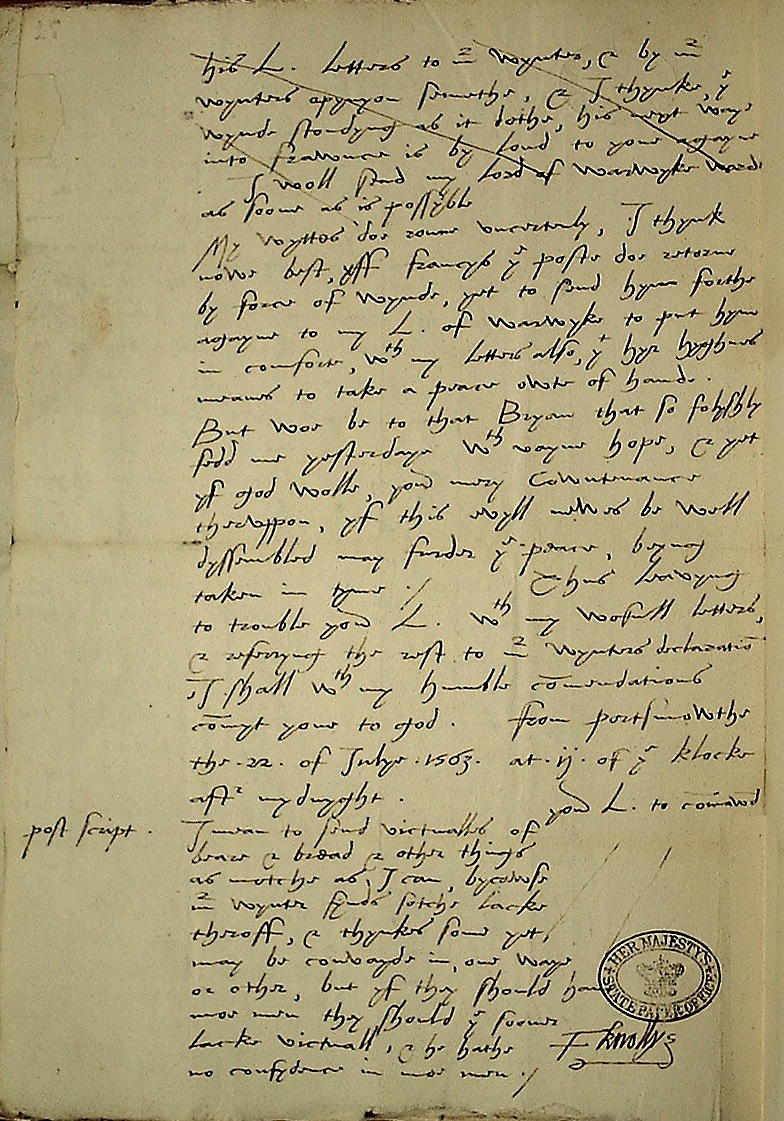 his L. letters to mr wynter, & by mr
wynters opynyon semethe, & I thynke, ye
wynde stondyng as it dothe, his next waye
into frawnce is by lond to your agayne
I woll send my Lord of Warwyke word
as soone as is possyble
My wyttes doe roune uncertenly, I thynk
nowe best, yff francys ye poste doe retorne
by force of wynde, yet to send hym forthe
agayne to my L. of Warwyke to put hym
in comforte, wth my letters also, yt hyr hyghnes
meanes to take a peace owte of hande.
But woe be to that Bryan that so folyshly
fedd me yesterdaye wth vayne hope, & yet
yf god wolle, your mery cowntenance
theruppon, yf this evyll newes be well
dyssembled may furder ye peace, beyng
taken in tyme ./ Thus leavyng
to trouble your L. wth my wofull letters,
& referryng the rest to mr wynters declaratiō
I shall wth my humble cōmendations
cōmyt youe to god. From portsmowthe
the .22. of Julye .1563. at .ij. of ye klocke
aftr mydnyght.
your L. to cōmawnd
post script.
I mean to send victualles of
beare & bread & other things
as motche as I can, bycawse
mr wynter fynds sotche lacke
theroff, & thynkes some yet,
may be convayde in, one waye
or other, but yf they should have
moe men they should ye sooner
lacke victuall, & he hathe
no confydence in moe men ./
F knollys
HER MAJESTY'S
STATE PAPER OFFICE